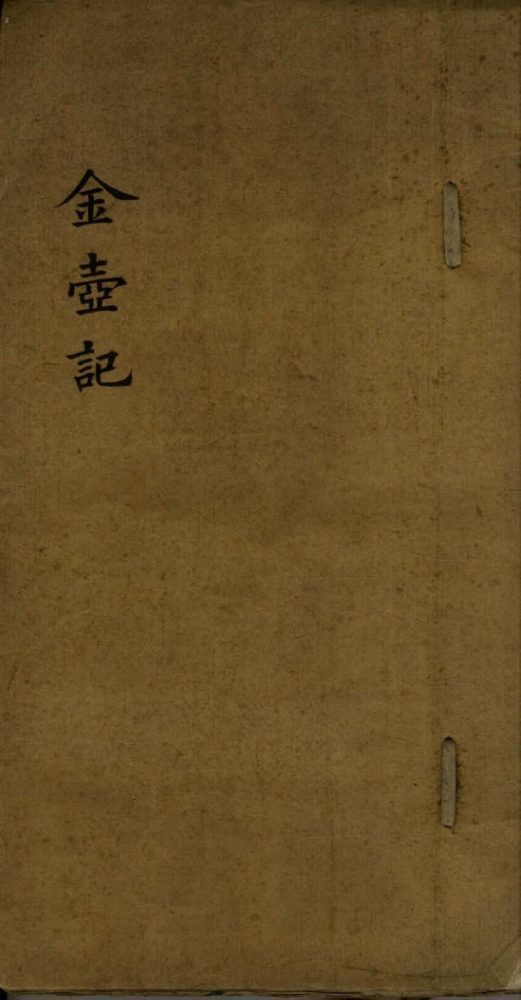 金壺記